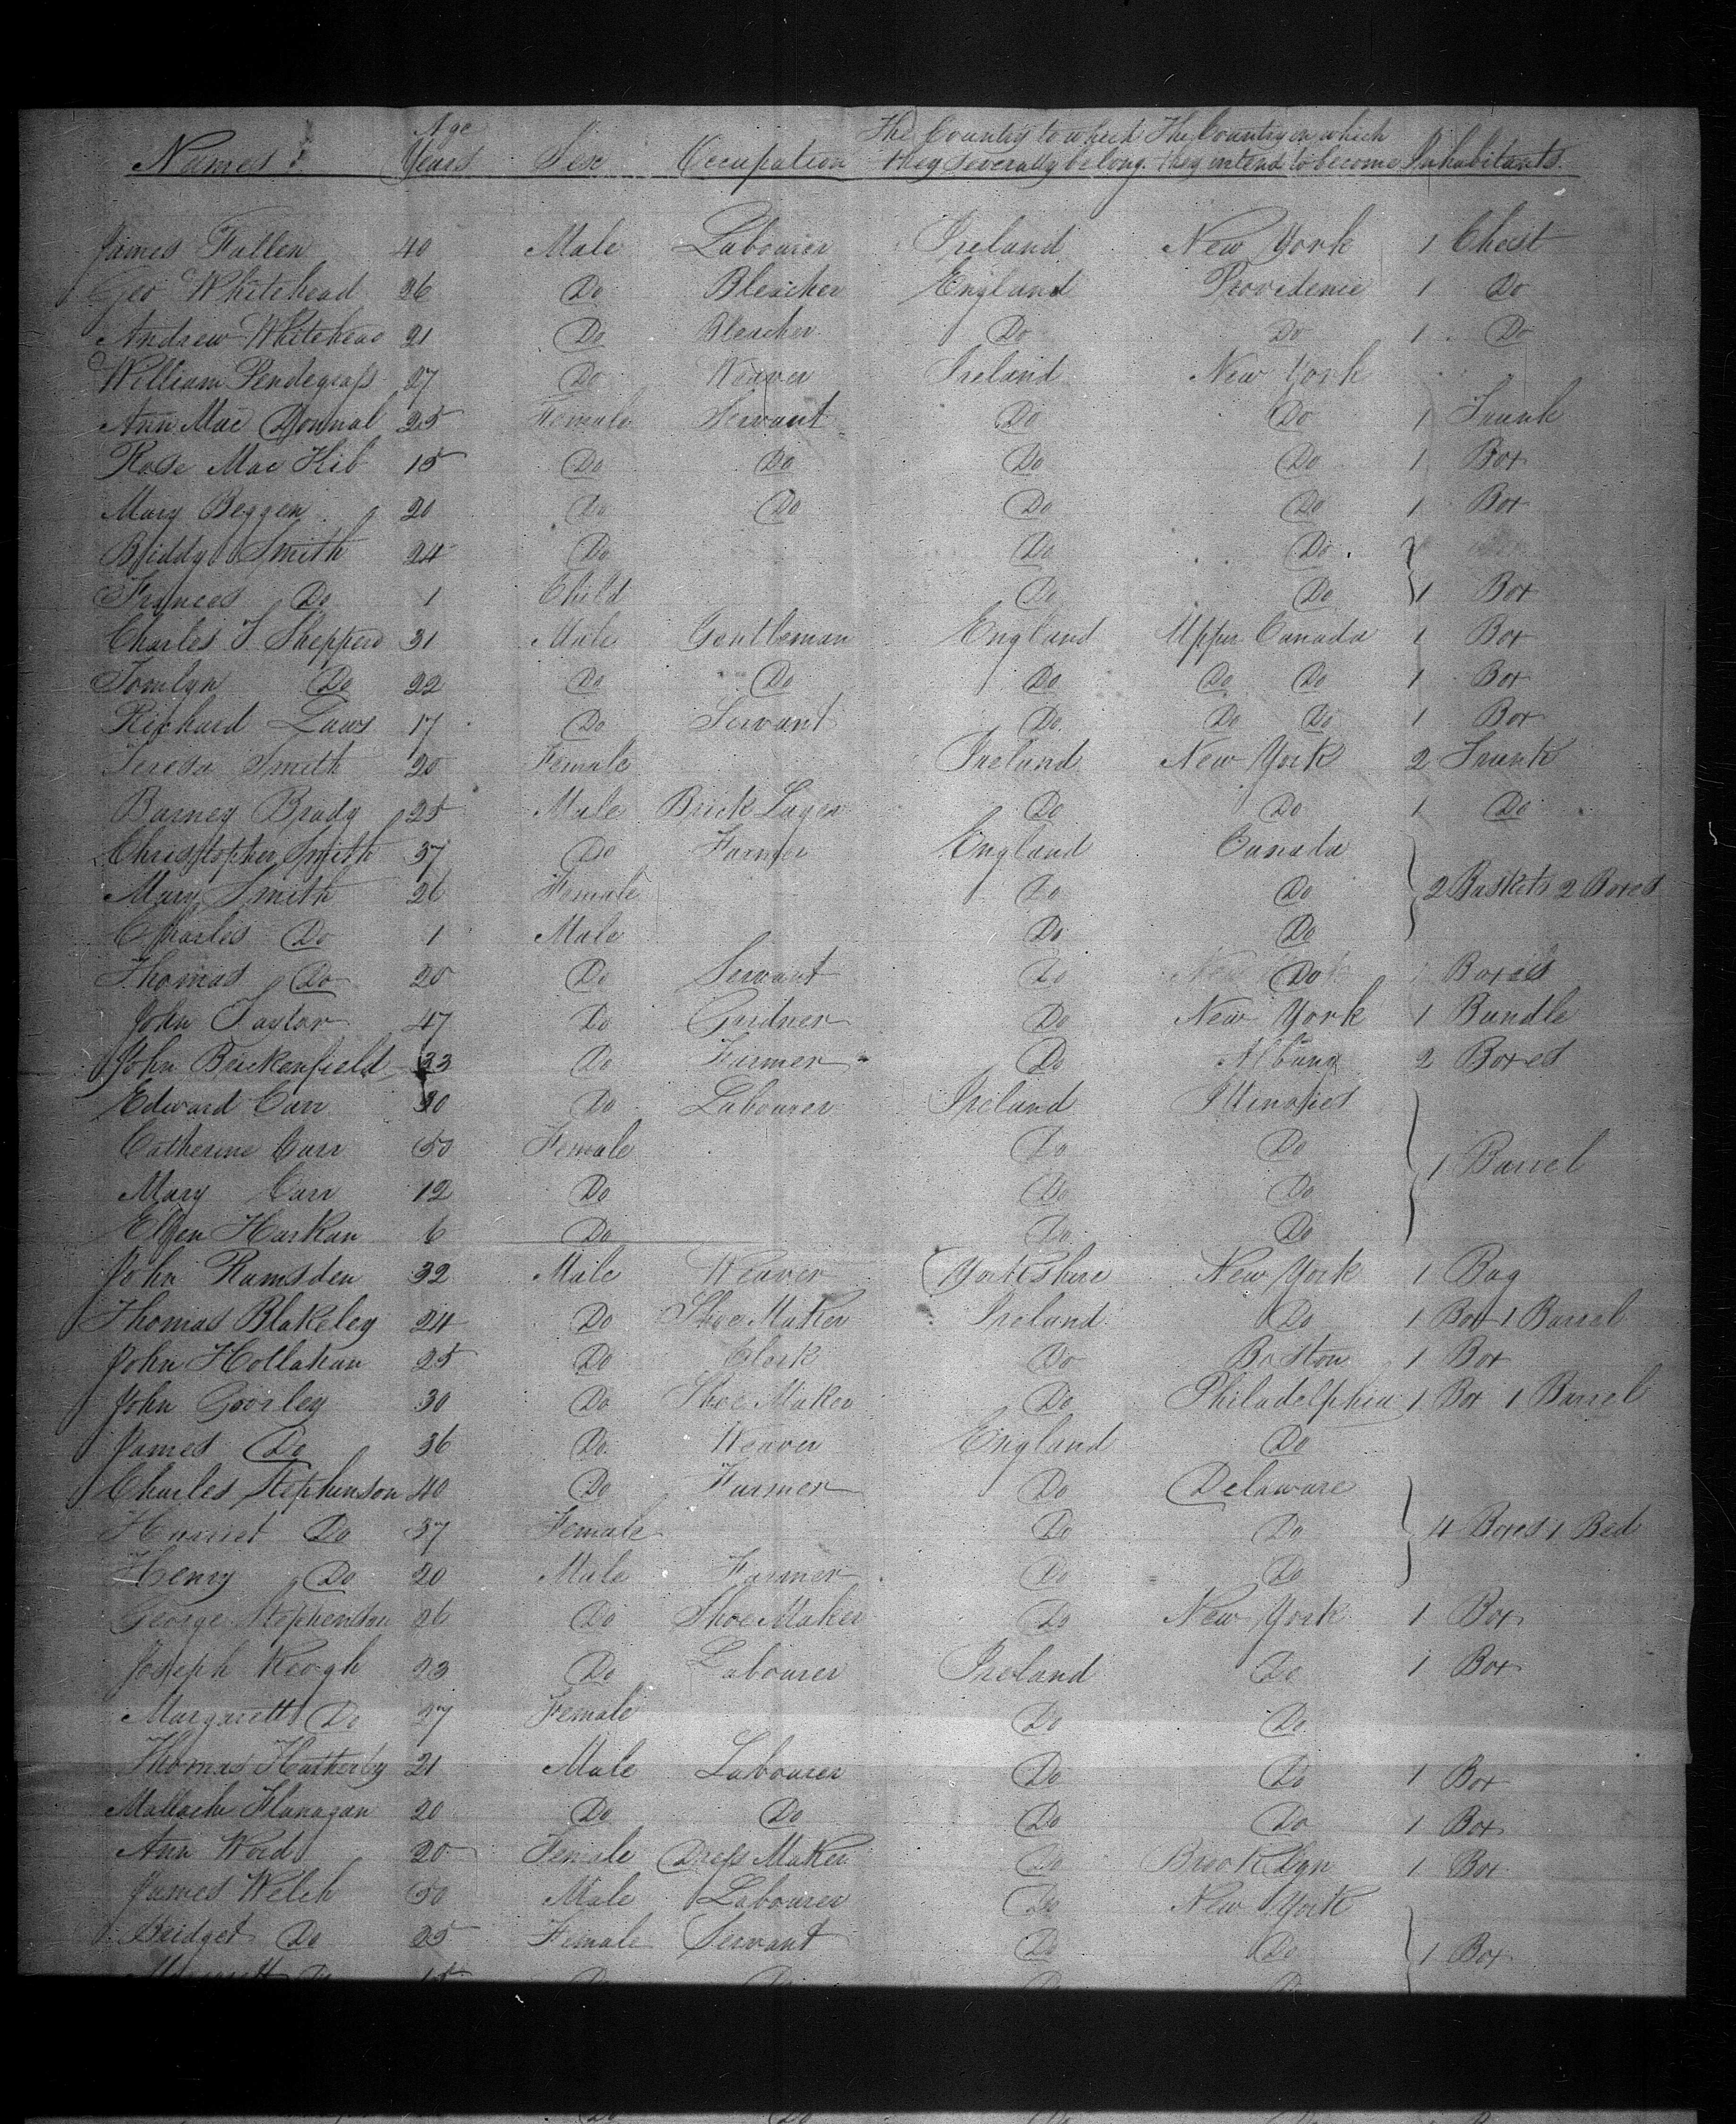 Names Age Years Sex Occupation The Country to which they severally belong. The Country in which they intend to become Inhabitants.
James Fallen 40 Male Labourer Ireland New York 1 Chest
Geo Whitehead 26 Do Bleacher England Providence 1 Do
Andrew Whitehead 21 Do Bleacher Do Do 1 Do
William Pendegrass 27 Do Weaver Ireland New York
Ann Mac Donnal 25 Female Servant Do Do 1 Trunk
Rose Mac Kib 15 Do Do Do Do 1 Box
Mary Beggen 20 Do Do Do Do 1 Box
Biddy Smith 24 Do Do Do
Frances Do 1 Child Do Do 1 Box
Charles T. Shepperd 31 Male Gentleman England Upper Canada 1 Box
Tomlyn Do 22 Do Do Do Do Do 1 Box
Richard Laws 17 Do Servant Do Do Do 1 Box
Teresa Smith 20 Female Ireland New York 2 Trunk
Barney Brady 25 Male Brick Layer Do Do 1 Do
Christopher Smith 37 Do Farmer England Canada
Mary Smith 26 Female Do Do 2 Baskets 2 Boxes
Charles Do 1 Male Do Do
Thomas Do 20 Do Servant Do Do Boxes
John Taylor 47 Do Gardner Do New York 1 Bundle
John Brickenfield 33 Do Farmer Do Albany 2 Boxes
Edward Carr 30 Do Labourer Ireland Illinoies
Catherine Carr 50 Female Do Do 1 Barrel
Mary Carr 12 Do Do Do
Ellen Harkan 6 Do Do Do
John Ramsden 32 Male Weaver Yorkshire New York 1 Bag
Thomas Blakeley 24 Do Shoe Maker Ireland Do 1 Box 1 Barrel
John Hollahan 25 Do Clerk Do Boston 1 Box
John Goorley 30 Do Shoe Maker Do Philadelphia 1 Box 1 Barrel
James Do 36 Do Weaver England Do
Charles Stephenson 40 Do Farmer Do Delaware
Harriet Do 37 Female Do Do 4 Boxes 1 Bed
Henry Do 20 Male Farmer Do Do
George Stephenson 26 Do Shoe Maker Do New York 1 Box
Joseph Keogh 23 Do Labourer Ireland Do 1 Box
Margarett Do 27 Female Do Do
Thomas Hatherby 21 Male Labourer Do Do 1 Box
Mallachi Flanagan 20 Do Do Do Do 1 Box
Ann Word 20 Female Dress Maker Do Brooklyn 1 Box
James Welch 50 Male Labourer Do New York
Bridget Do 25 Female Servant Do Do 1 Box
Margarett Do 15 Do Do Do Do